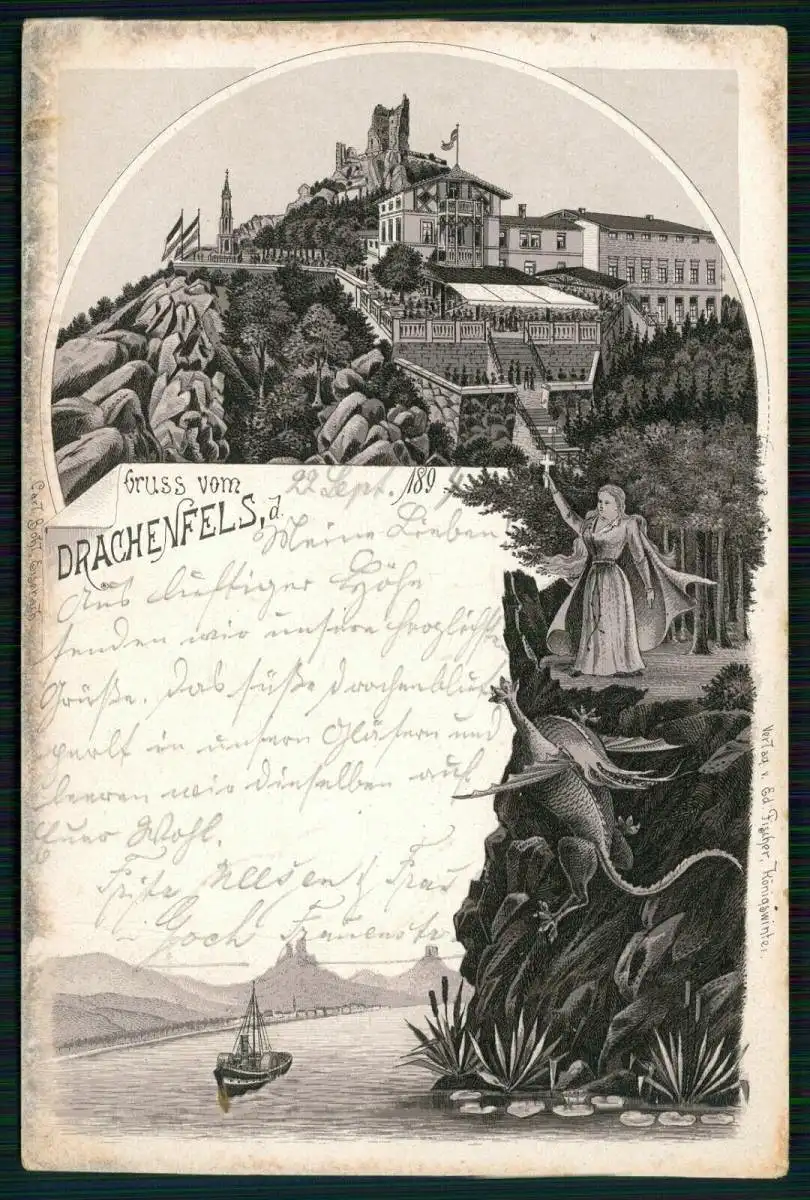 Gruss vom
DRACHENFELS, d. 22 Sept. 189
Meine Lieben
Aus luftiger Höhe
senden wir unsere herzlichste
Grüße. Das süße Drachenblut
perlt in unsern Gläsern und
leeren wir dieselben auf
Euer Wohl.
Fritz Neesen & Frau
Goch Frauenstr.
Verlag v. Ed. Fischer, Königswinter.
Carl